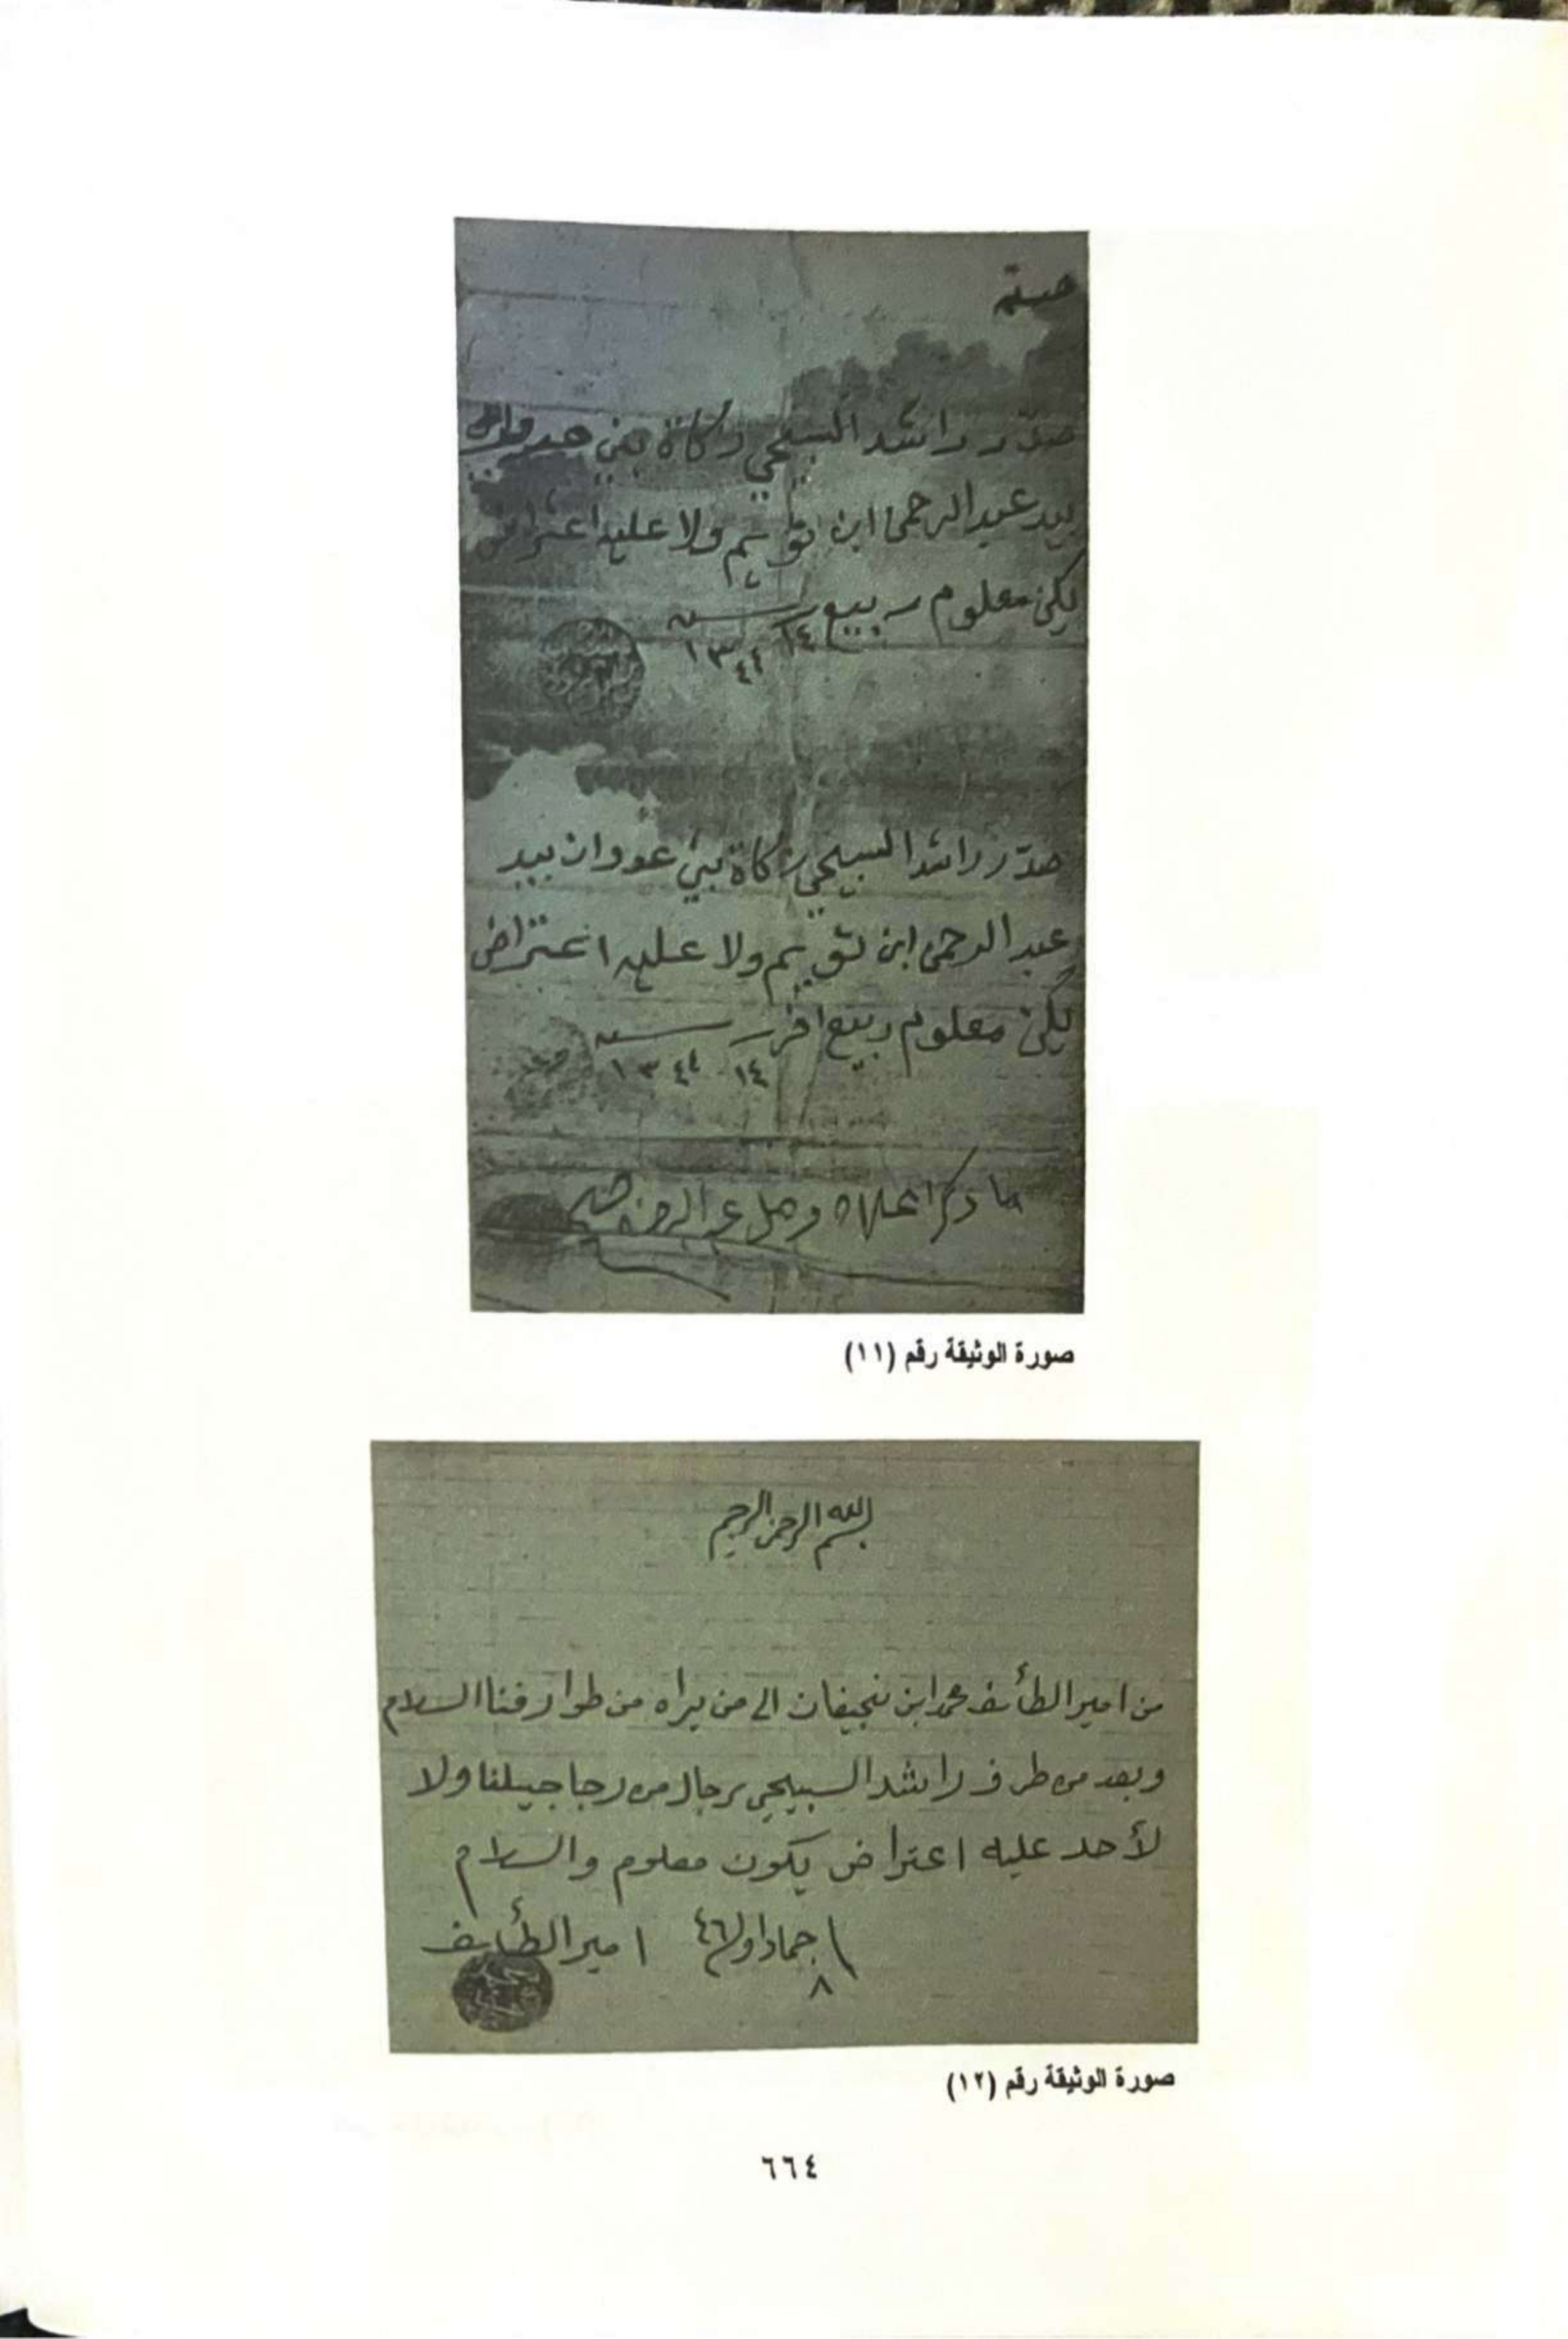 صدر راشد السبيحي زكاة بني
بيد عبد الرحمن ابن تويم ولا عليه اعتراض
يكن معلوم ربيع ١٤ سنه ١٣٤٤
صدر راشد السبيحي زكاة بني عدوان بيد
عبد الرحمن ابن تويم ولا عليه اعتراض
يكن معلوم ربيع اخر ١٤ سنه ١٣٤٤
ما ذكر اعلاه وصل
صورة الوثيقة رقم (١١)
بسم الله الرحمن الرحيم
من امير الطائف محمد ابن نجيفان الى من يراه من طوارفنا السلام
وبعد من طرف راشد السبيحي رجال من رجاجيلنا ولا
لأحد عليه اعتراض يكون معلوم والسلام
٨ جماد اول ٤٦ امير الطائف
صورة الوثيقة رقم (١٢)
٦٦٤